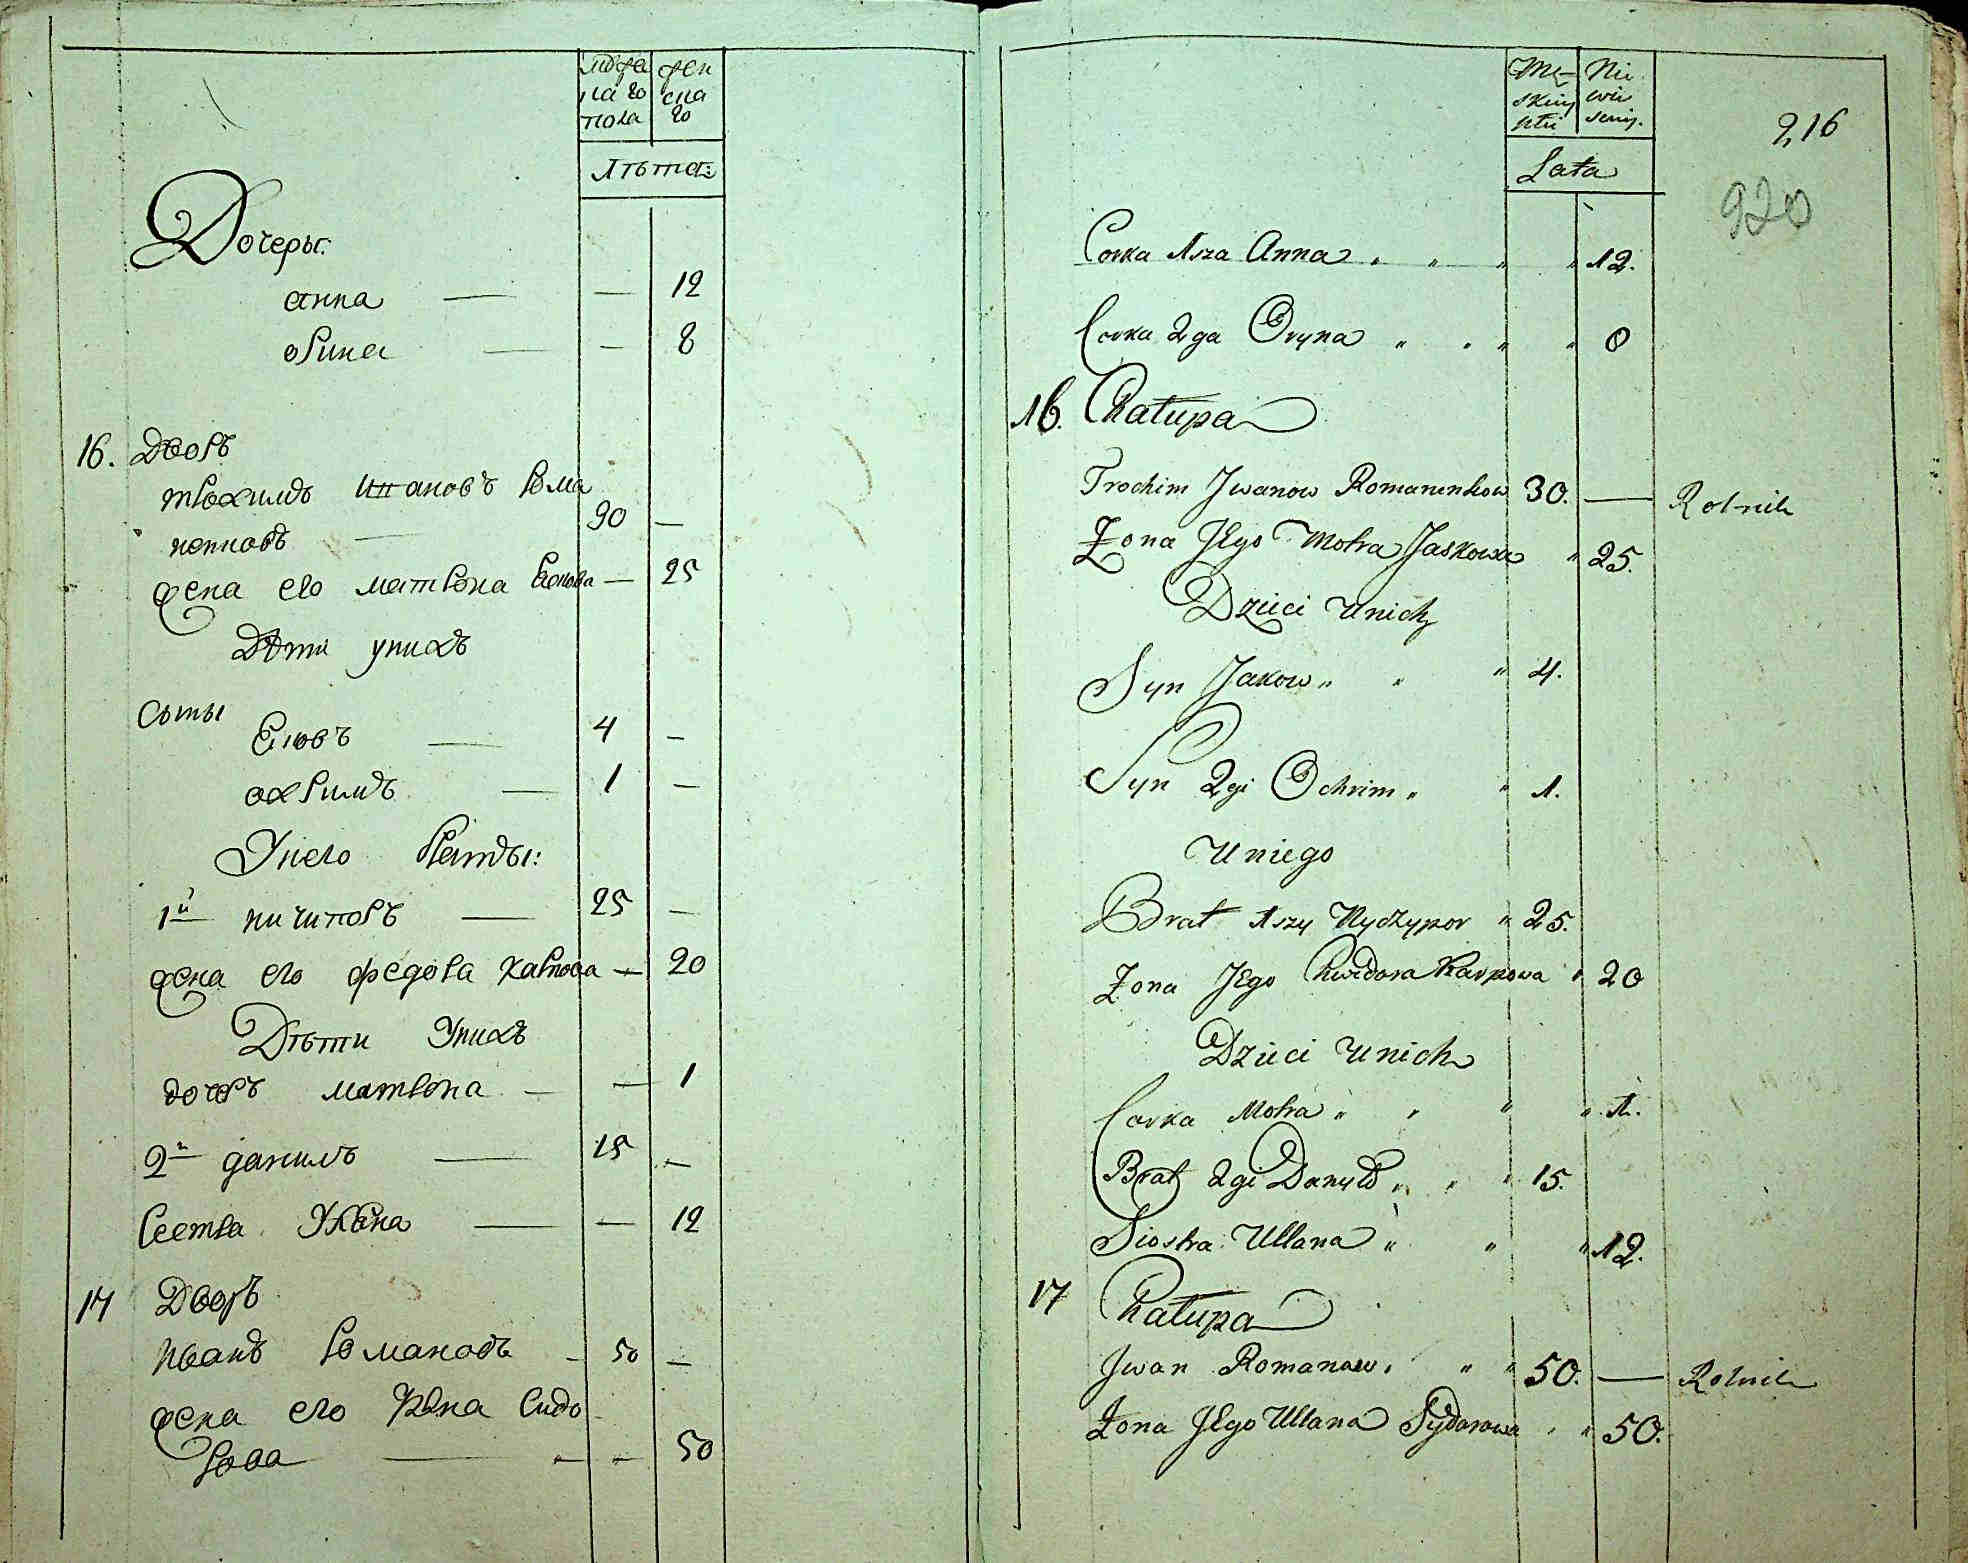 муже женс
наго ка
пола го
Лѣта:
Дочеры:
анна — — 12
орина — — 8
16. Дворъ
трохимъ ивановъ Рома
ненковъ — 30 —
жена его матрона Яскова — 25
Дѣти унихъ
Сыны
Яковъ — 4 —
охримъ — 1 —
Унего браты:
1й ничипоръ — 25 —
жена его федора карпова — 20
Дѣти Унихъ
дочеръ матрона — — 1
2й данило — 15 —
Сестра Уляна — — 12
17 Дворъ
иванъ Романовъ — 50 —
жена его Уляна Сидо
рова — — 50
Męskiey płci Niewieściey
Lata
216
920
Corka 1sza Anna " " " " 12.
Corka 2ga Oryna " " " " 8
16. Chałupa
Trochim Jwanow Romanenkow 30. — Rolnik
Żona JEgo Motra Jaskowa " 25.
Dzieci Unich
Syn Jakow " " " 4.
Syn 2gi Ochrim " " 1.
Uniego
Brat 1szy Nyczypor " 25.
Żona JEgo Chwedora Karpowa " 20
Dzieci Unich
Corka Motra " " " " 1.
Brat 2gi Danyło " " " 15.
Siostra Ullana " " " 12.
17 Chałupa
Jwan Romanow " " " 50. — Rolnik
Żona JEgo Ullana Sydorowa " " 50.